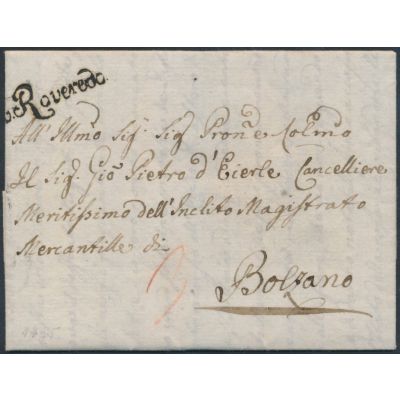 v. Roveredo.
All' Illmo Sig: Sig Prone Colmo
Il Sig. Gio Pietro d'Eierle Cancelliere
Meritissimo dell' Inclito Magistrato
Mercantille di
Bolzano
3